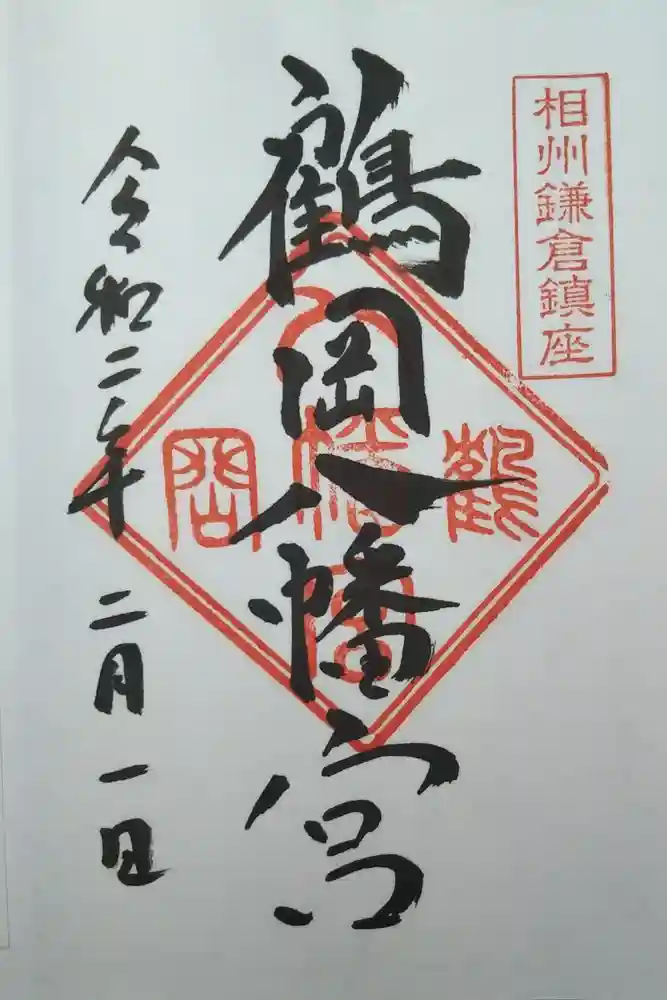 相州鎌倉鎮座
鶴岡八幡宮
鶴岡八幡宮
令和二年 二月 一日